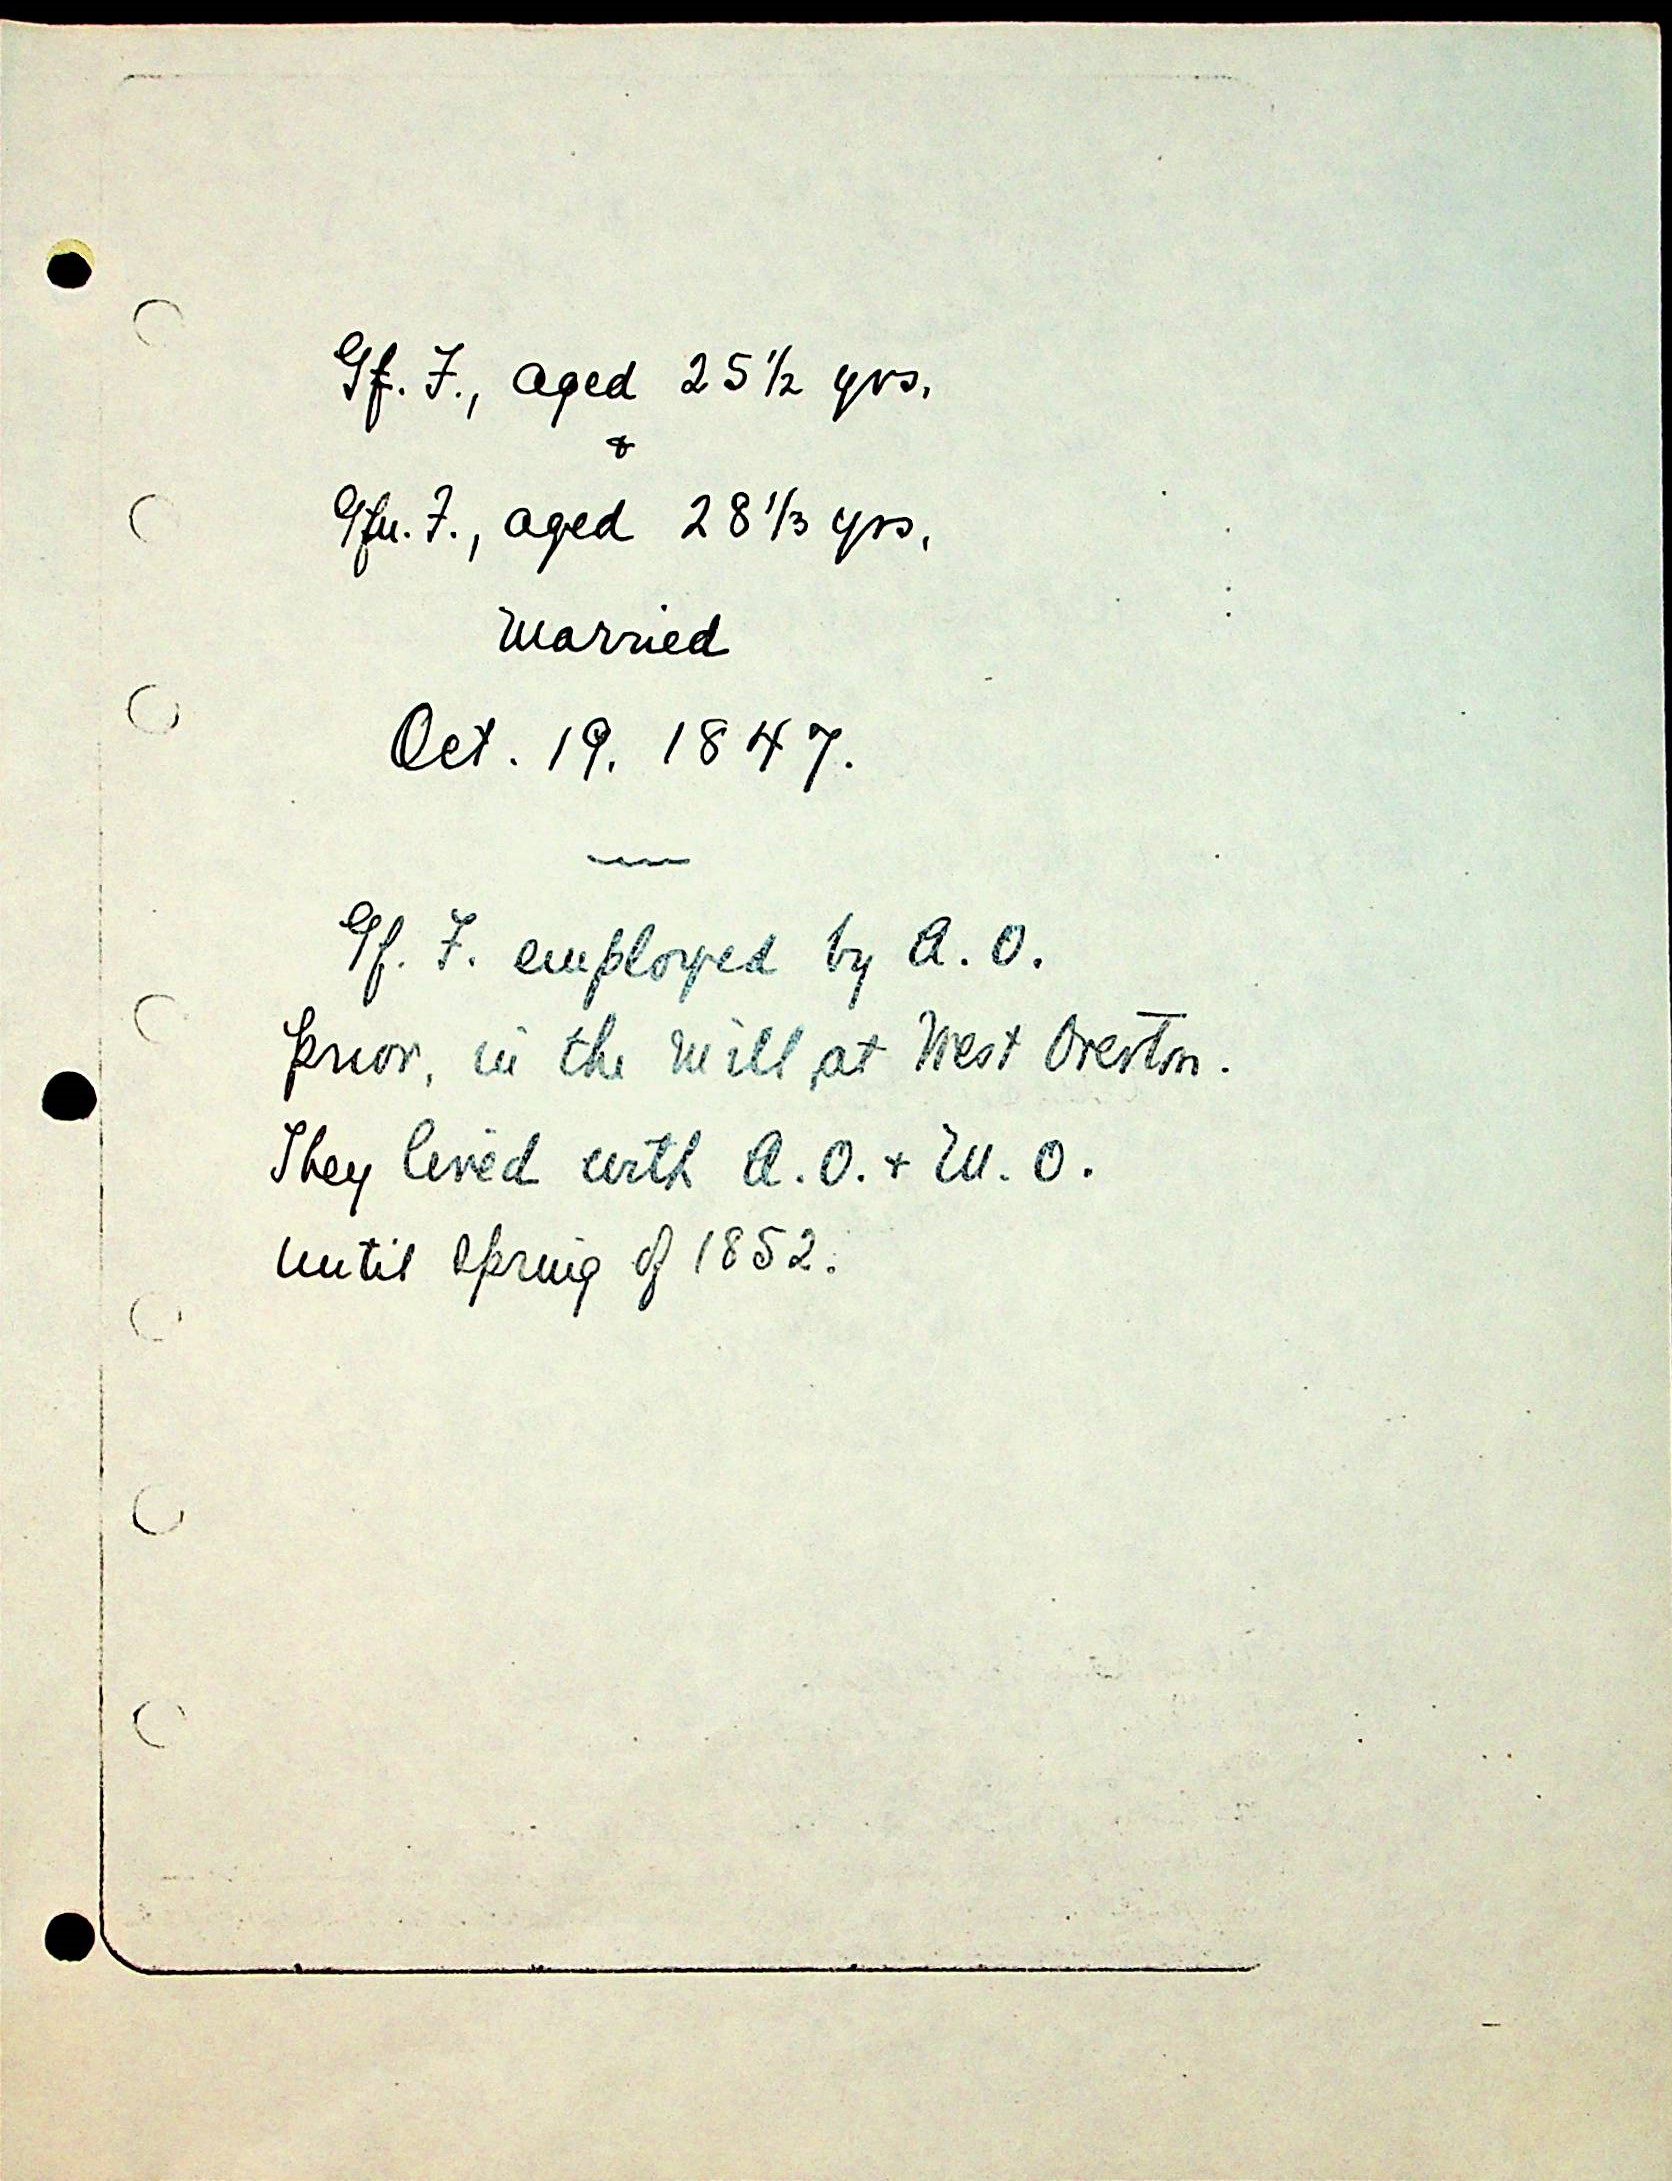 Gf. F., aged 25 1/2 yrs.
&
Gfm. F., aged 28 1/3 yrs.
Married
Oct. 19. 1847.
Gf. F. employed by A. O.
prior, in the Mill at West
They lived with A. O. + M. O.
until Spring of 1852.